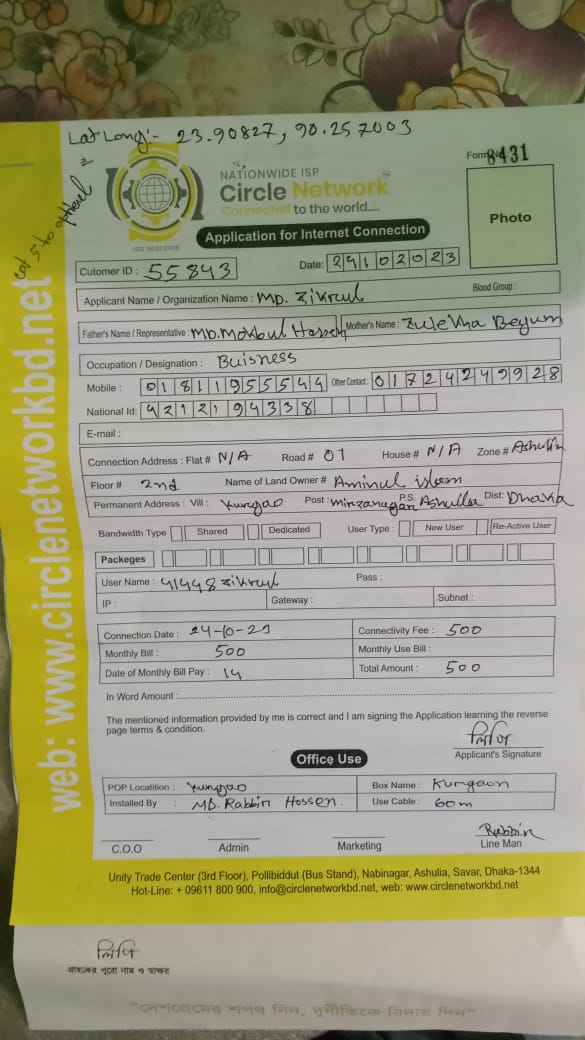 Lat Long:- 23.90827, 90.257003
Form 8431
NATIONWIDE ISP
Circle Network
Connected to the world....
ISO 9001:2015
Application for Internet Connection
Photo
Cutomer ID : 55843
Date: 24102023
Blood Group :
Applicant Name / Organization Name : MD. Zikrul
Father's Name / Representative : MD. Mokbul Hossen Mother's Name : Zulekha Begum
Occupation / Designation : Buisness
Mobile : 01811955544 Other Contact : 01724249928
National Id: 4212194338
E-mail :
Connection Address : Flat # N/A Road # 01 House # N/A Zone # Ashulia
Floor # 2nd Name of Land Owner # Aminul islam
Permanent Address : Vill : Kurgao Post : P.S. Ashulia Dist: Dhaka
Bandwidth Type Shared Dedicated User Type : New User Re-Active User
Packeges
User Name : 41448 Zikrul Pass :
IP : Gateway : Subnet :
Connection Date : 24-10-23 Connectivity Fee : 500
Monthly Bill : 500 Monthly Use Bill :
Date of Monthly Bill Pay : 14 Total Amount : 500
In Word Amount :
The mentioned information provided by me is correct and I am signing the Application learning the reverse
page terms & condition.
লিপি
Applicant's Signature
Office Use
POP Locatition : Kurgao Box Name : Kurgaon
Installed By : MD. Rabbin Hossen. Use Cable : 60m
Rabbin
C.O.O Admin Marketing Line Man
Unity Trade Center (3rd Floor), Pollibiddut (Bus Stand), Nabinagar, Ashulia, Savar, Dhaka-1344
Hot-Line: + 09611 800 900, info@circlenetworkbd.net, web: www.circlenetworkbd.net
web: www.circlenetworkbd.net
লিপি
গ্রাহকের পুরো নাম ও স্বাক্ষর
"দেশপ্রেমের শপথ নিন, দুর্নীতিকে বিদায় দিন"